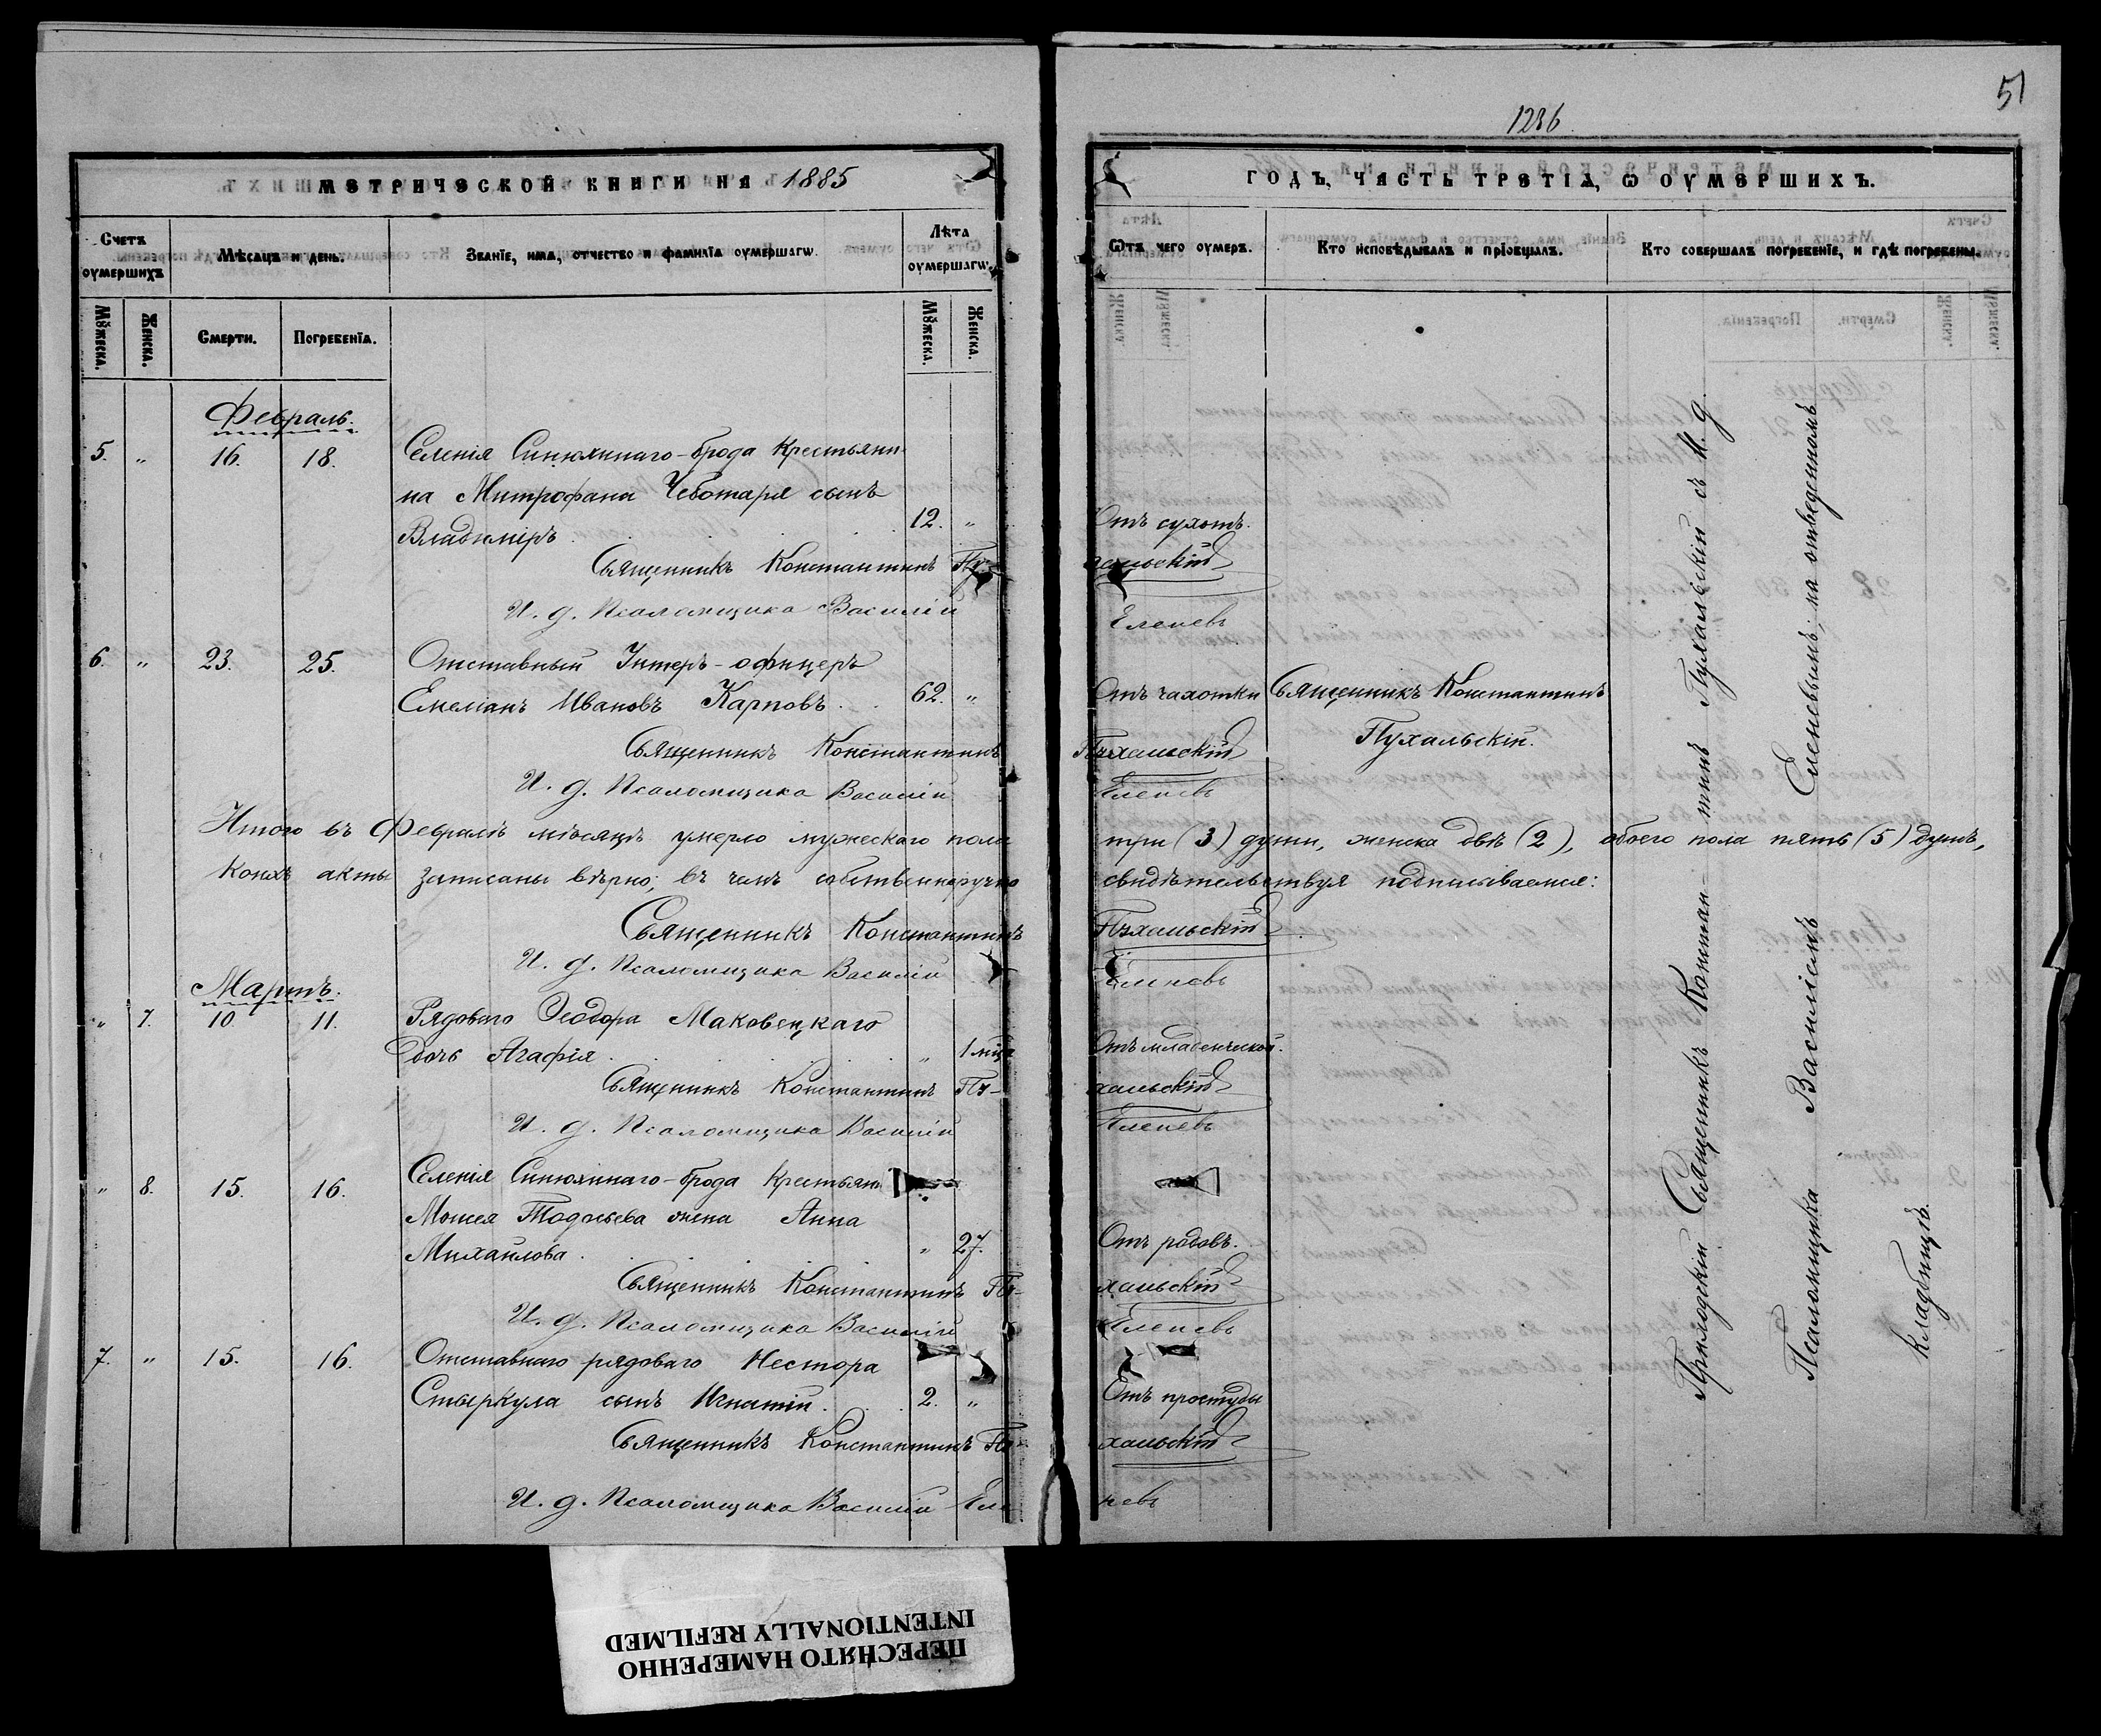 51
1286.
МЕТРИЧЕСКОЙ КНИГИ НА 1885 ГОДЪ, ЧАСТЬ ТРЕТІѦ, Ѡ ОУМЕРШИХЪ.
Счетъ оумершихъ
Мѣсяцъ и день.
Званіе, имѧ, отчество и фамиліѧ оумершагѡ.
Лѣта оумершагѡ.
Ѿтъ чего оумеръ.
Кто исповѣдывалъ и прїобщалъ.
Кто совершалъ погребенїе, и гдѣ погребены.
Мꙋжеска.
Женска.
Смерти.
Погребенїѧ.
Мꙋжеска.
Женска.
Февраль.
5. " 16. 18. Селенія Синюхинаго-брода Крестьяни-
на Митрофана Чеботаря сынъ
Владиміръ . . . 12. " Отъ сухотъ.
Священникъ Константинъ Пу-хальскій
И. д. Псаломщика Василій Еленевъ
6. " 23. 25. Отставный Унтеръ-офицеръ
Емеліанъ Ивановъ Карповъ . . 62. " Отъ чахотки Священникъ Константинъ
Пухальскій.
Священникъ Константинъ Пухальскій
И. д. Псаломщика Василій Еленевъ
Итого въ Февралѣ мѣсяцѣ умерло мужескаго пола три (3) души, женска двѣ (2), обоего пола пять (5) душъ,
коихъ акты записаны вѣрно; въ чемъ собственноручно свидѣтельствуя подписываемся:
Священникъ Константинъ Пухальскій
И. д. Псаломщика Василій Еленевъ
Мартъ.
" 7. 10. 11. Рядоваго Ѳеодора Маковецкаго
дочь Агафія . . . " 1 мца Отъ младенческой.
Священникъ Константинъ Пу-хальскій
И. д. Псаломщика Василій Еленевъ
" 8. 15. 16. Селенія Синюхинаго-брода Крестьяни
Моисея Тодосьева жена Анна
Михайлова . . . " 27. Отъ родовъ.
Священникъ Константинъ Пу-хальскій
И. д. Псаломщика Василій Еленевъ
7. " 15. 16. Отставнаго рядоваго Нестора
Стыркула сынъ Игнатій . . . 2. " Отъ простуды
Священникъ Константинъ Пу-хальскій
И. д. Псаломщика Василій Еленевъ
Приходскій Священникъ Константинъ Пухальскій съ И. д.
Псаломщика Василіемъ Еленевымъ; на отведенномъ
кладбищѣ.
ПЕРЕСНЯТО НАМЕРЕННО
INTENTIONALLY REFILMED